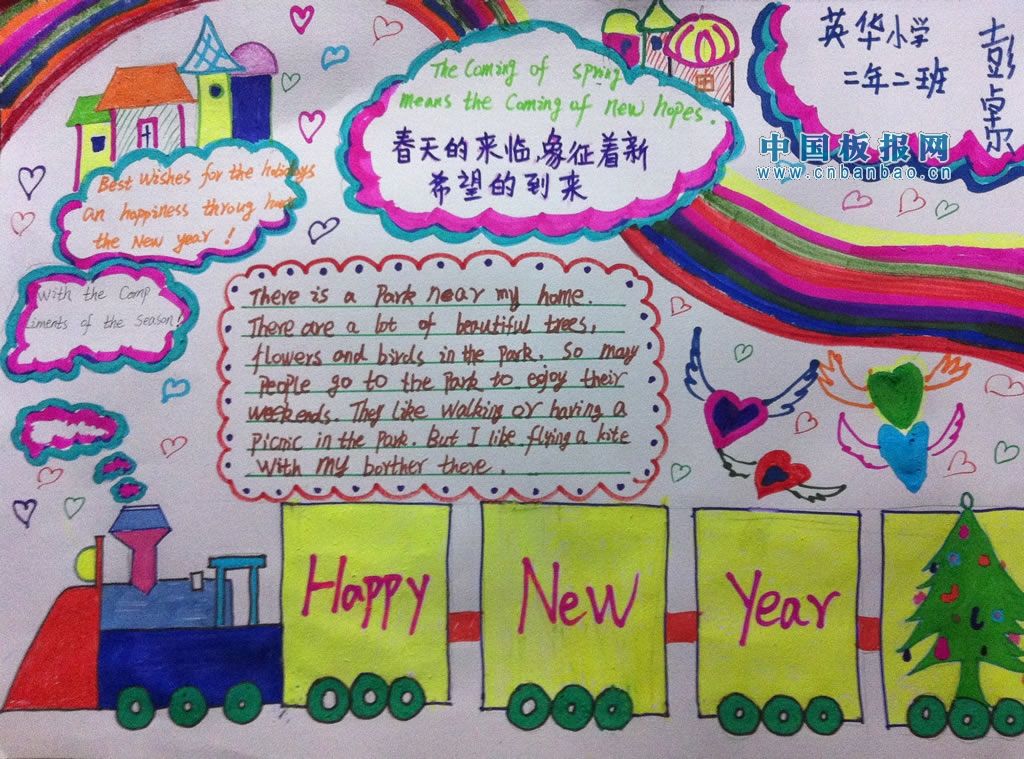 The Coming of spring
means the Coming of new hopes.
春天的来临,象征着新
希望的到来
英华小学
二年二班
彭卓尔
中国板报网
www.cnbanbao.cn
Best wishes for the holidays
an happiness throug
the New year!
With the Comp
liments of the Season!
There is a Park near my home.
There are a lot of beautiful trees,
flowers and birds in the park. So many
people go to the Park to enjoy their
weekends. They like walking or having a
Picnic in the Park. But I like flying a kite
With my borther there.
Happy New Year